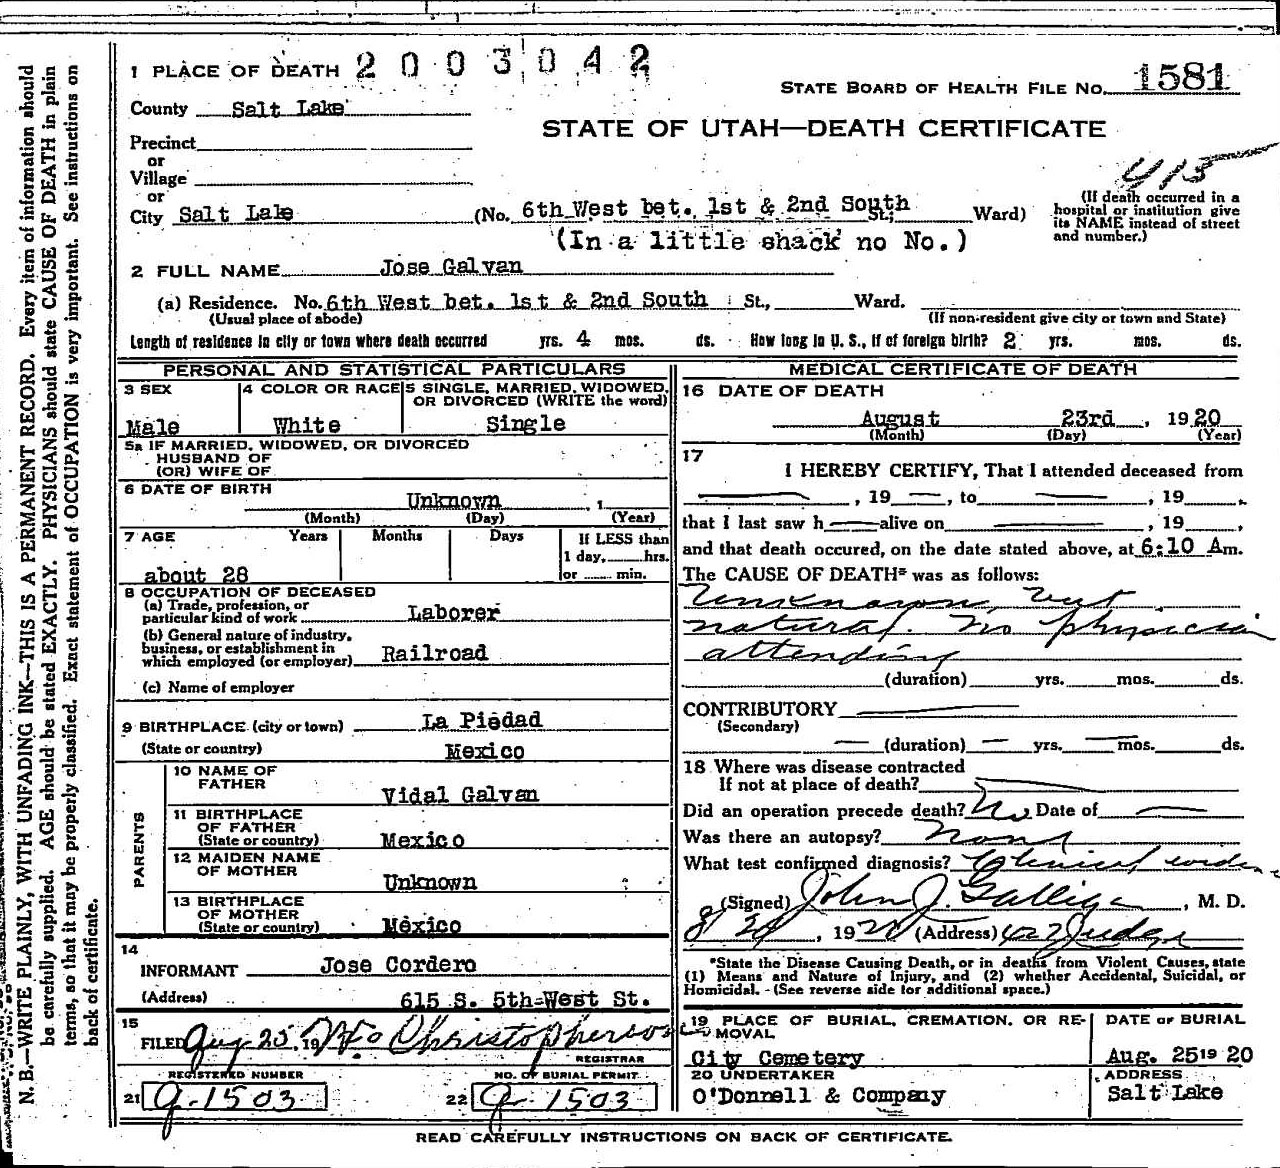 1 PLACE OF DEATH 2003042
STATE BOARD OF HEALTH FILE NO. 1581
County Salt Lake
STATE OF UTAH—DEATH CERTIFICATE
Precinct
or
Village
415
or
City Salt Lake (No. 6th West bet. 1st & 2nd South St.; Ward)
(If death occurred in a hospital or institution give its NAME instead of street and number.)
(In a little shack no No.)
2 FULL NAME Jose Galvan
(a) Residence. No. 6th West bet. 1st & 2nd South St., Ward.
(Usual place of abode) (If non-resident give city or town and State)
Length of residence in city or town where death occurred yrs. 4 mos. ds. How long in U. S., if of foreign birth? 2 yrs. mos. ds.
PERSONAL AND STATISTICAL PARTICULARS
3 SEX
Male
4 COLOR OR RACE
White
5 SINGLE, MARRIED, WIDOWED, OR DIVORCED (WRITE the word)
Single
5a IF MARRIED, WIDOWED, OR DIVORCED
HUSBAND OF
(OR) WIFE OF
6 DATE OF BIRTH
Unknown , 1
(Month) (Day) (Year)
7 AGE Years Months Days If LESS than
1 day, hrs.
or min.
about 28
8 OCCUPATION OF DECEASED
(a) Trade, profession, or
particular kind of work Laborer
(b) General nature of industry,
business, or establishment in
which employed (or employer) Railroad
(c) Name of employer
9 BIRTHPLACE (city or town) La Piedad
(State or country) Mexico
PARENTS
10 NAME OF
FATHER Vidal Galvan
11 BIRTHPLACE
OF FATHER
(State or country) Mexico
12 MAIDEN NAME
OF MOTHER
Unknown
13 BIRTHPLACE
OF MOTHER
(State or country) Mexico
14
INFORMANT Jose Cordero
(Address) 615 S. 5th West St.
15
FILED Aug 25, 19 Christopherson
REGISTRAR
REGISTERED NUMBER NO. OF BURIAL PERMIT
21 1503 22 1503
MEDICAL CERTIFICATE OF DEATH
16 DATE OF DEATH
August 23rd, 1920
(Month) (Day) (Year)
17
I HEREBY CERTIFY, That I attended deceased from
— , 19 — , to — , 19 ,
that I last saw h — alive on — , 19 ,
and that death occured, on the date stated above, at 6:10 Am.
The CAUSE OF DEATH* was as follows:
Unknown, but
natural. No physician
attending
(duration) yrs. mos. ds.
CONTRIBUTORY —
(Secondary)
— (duration) — yrs. — mos. ds.
18 Where was disease contracted
If not at place of death?
Did an operation precede death? No Date of —
Was there an autopsy? None
What test confirmed diagnosis? Clinical
(Signed) John J. Galligan, M. D.
8/24, 1920 (Address) 427 Judge
*State the Disease Causing Death, or in deaths from Violent Causes, state
(1) Means and Nature of Injury, and (2) whether Accidental, Suicidal, or
Homicidal. (See reverse side for additional space.)
19 PLACE OF BURIAL, CREMATION, OR REMOVAL
City Cemetery
DATE OF BURIAL
Aug. 25 19 20
20 UNDERTAKER
O'Donnell & Company
ADDRESS
Salt Lake
READ CAREFULLY INSTRUCTIONS ON BACK OF CERTIFICATE.
N. B.—WRITE PLAINLY, WITH UNFADING INK—THIS IS A PERMANENT RECORD. Every item of information should
be carefully supplied. AGE should be stated EXACTLY. PHYSICIANS should state CAUSE OF DEATH in plain
terms, so that it may be properly classified. Exact statement of OCCUPATION is very important. See instructions on
back of certificate.